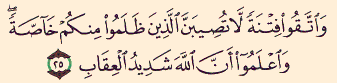 وَٱتَّقُوا۟ فِتْنَةً لَّا تُصِيبَنَّ ٱلَّذِينَ ظَلَمُوا۟ مِنكُمْ خَآصَّةً ۖ
وَٱعْلَمُوٓا۟ أَنَّ ٱللَّهَ شَدِيدُ ٱلْعِقَابِ ٢٥